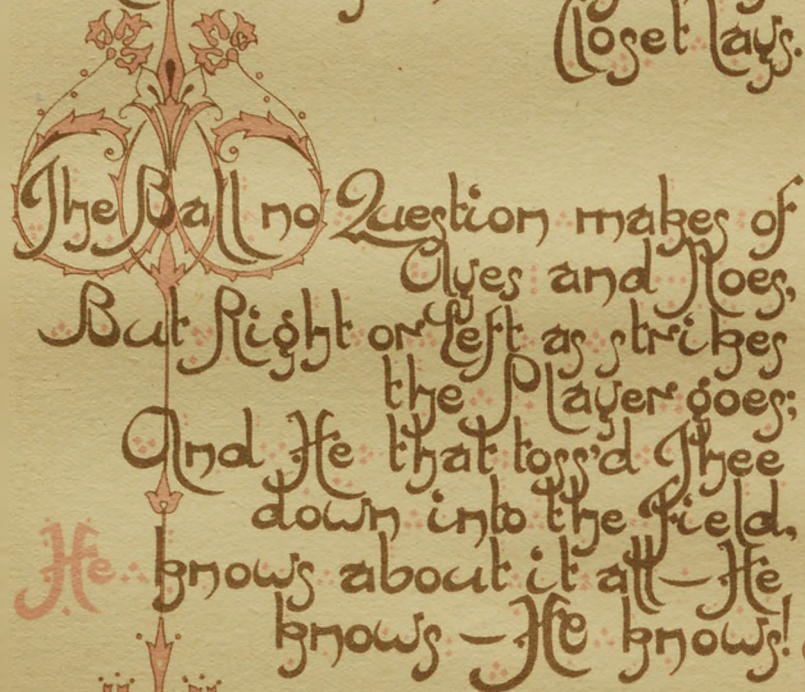 Closet lays.
The Ball no Question makes of
Ayes and Noes,
But Right or Left as strikes
the Player goes;
And He that toss'd Thee
down into the Field,
He knows about it all—He
knows—He knows!